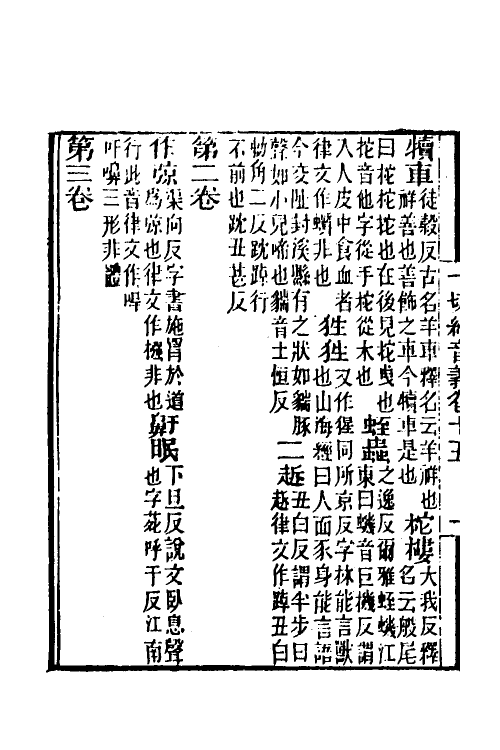 一切經音義卷十五　一
犢車徒穀反古名羊車釋名云羊祥也
祥善也善飾之車今犢車是也
柁樓大我反釋
名云般尾
曰柁柁拕也在後見拕曳也
拕音他字從手柁從木也
蛭蟲之逸反爾雅蛭蟣江
東曰蟣音巨機反謂
入人皮中食血者
律文作蠐非也
狌狌又作猩同所京反字林能言獸
也山海經曰人面豕身能言語
今交阯封溪縣有之狀如貒豚
聲如小兒啼也貒音土恒反
二䟆丑白反謂半步曰
䟆律文作踔丑白
勅角二反䟛踔行
不前也䟛丑甚反
第二卷
作弶渠向反字書施罥於道
爲弶也律文作摾非也
鼾眠下旦反說文臥息聲
也字苑呼干反江南
行此音律文作
吁三形非體
第三卷